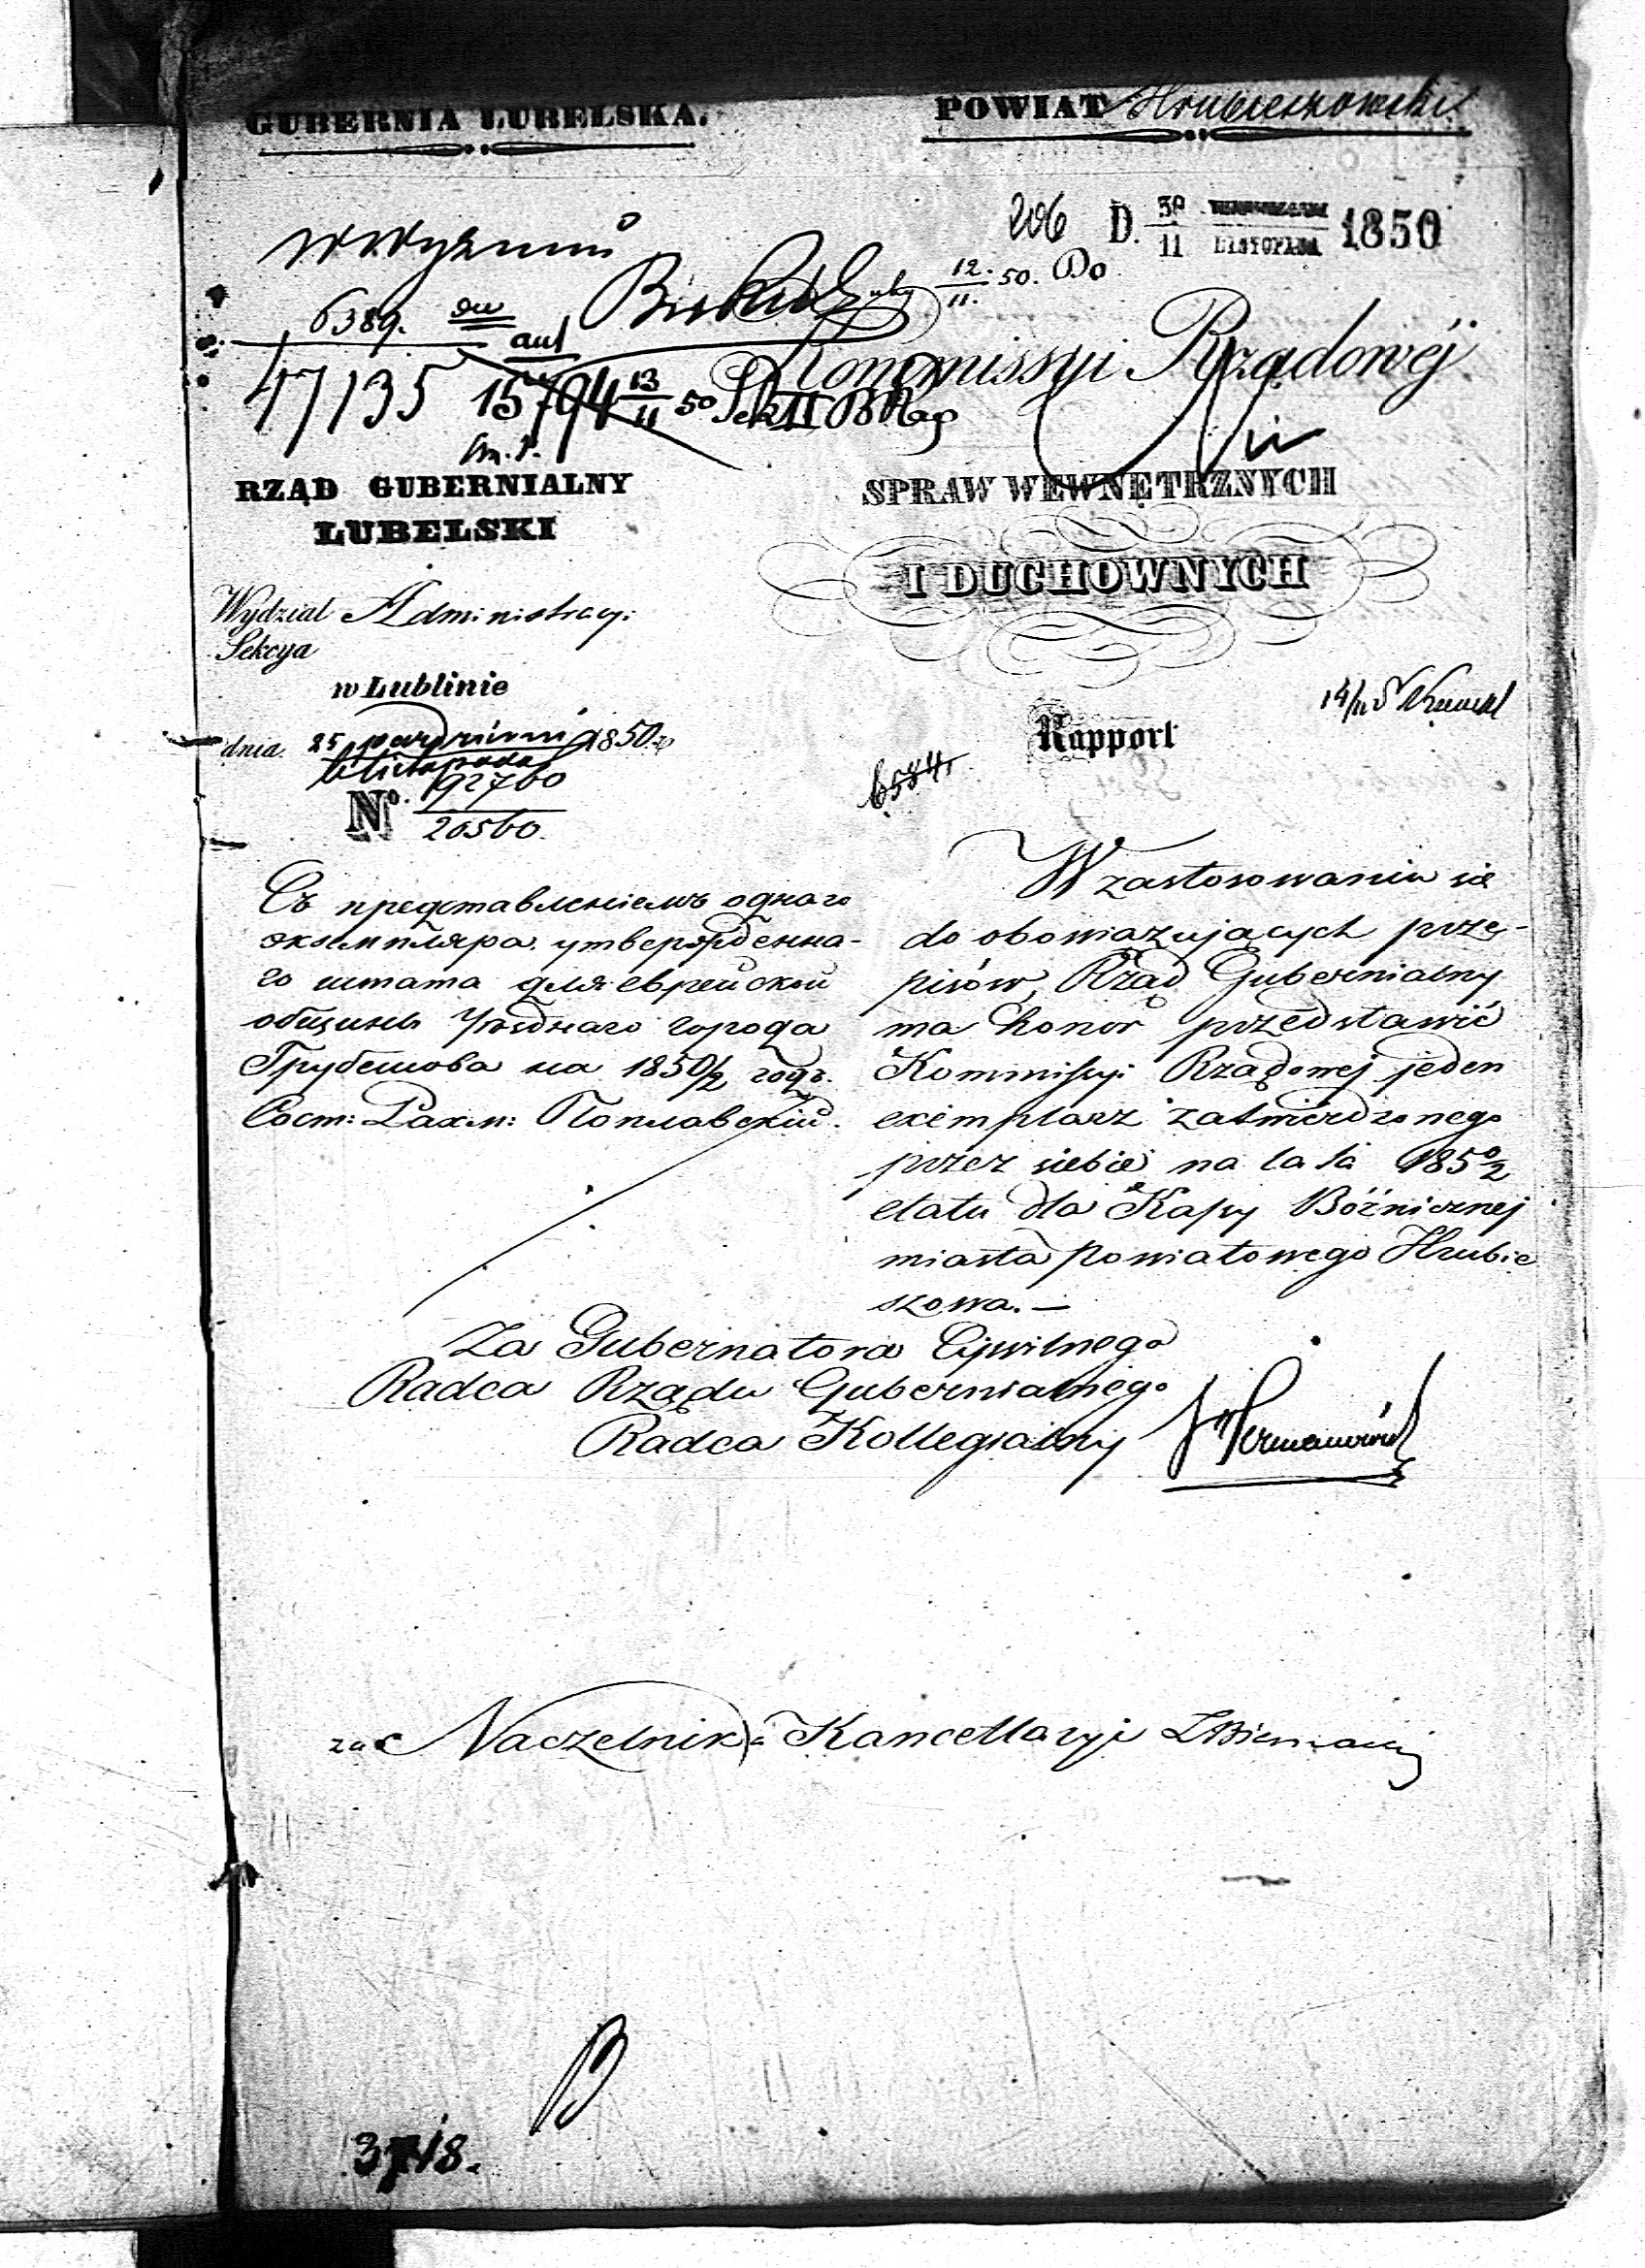 GUBERNIA LUBELSKA.
POWIAT Hrubieszowski
206 D. 30/11 LISTOPADA 1850
12/11. 50. Do
6389.
47135 15794 13/11 50 Sek II
Kommissyi Rządowéj
RZĄD GUBERNIALNY
LUBELSKI
SPRAW WEWNĘTRZNYCH
I DUCHOWNYCH
Wydział Administracyi
Sekcya
w Lublinie
dnia 25 października 1850 r
6 listopada
No. 92760
20560.
Rapport
6584
Съ представленіемъ одного
экземпляра утвержденна-
го штата для еврейской
общины Уѣзднаго города
Грубешова на 1850/2 годъ.
Сост: Рахм: Поплавскій.
W zastosowaniu się
do obowiązujących prze-
pisów, Rząd Gubernialny
ma honor przedstawić
Kommissyi Rządowej jeden
exemplarz zatwierdzonego
przez siebie na lata 1850/2
etatu dla Kassy Bóźnicznej
miasta powiatowego Hrubie
szowa. —
Za Gubernatora Cywilnego
Radca Rządu Gubernialnego
Radca Kollegialny
za Naczelnika Kancellaryi